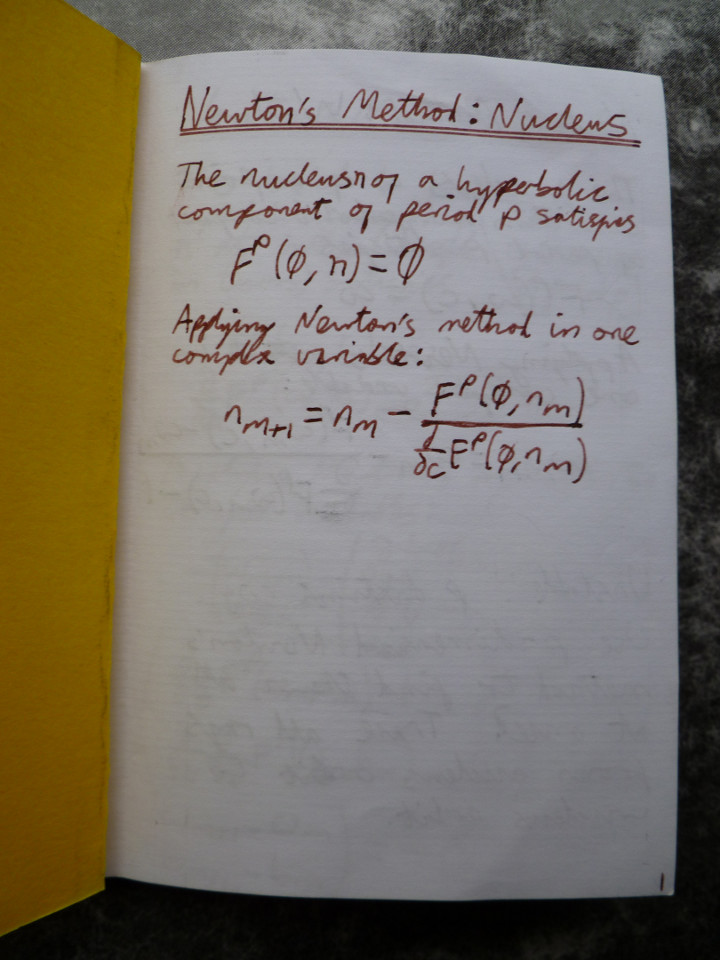 Newton's Method: Nucleus
The nucleus n of a hyperbolic
component of period p satisfies
F^p(0, n) = 0
Applying Newton's method in one
complex variable:
n_{m+1} = n_m - F^p(0, n_m)
∂/∂c F^p(0, n_m)
1